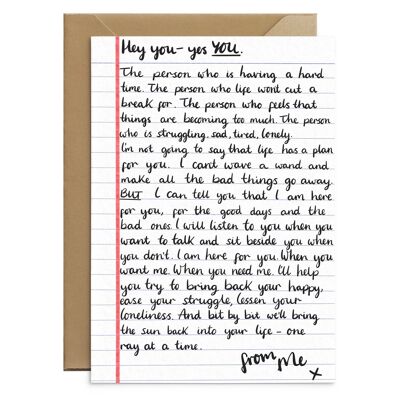 Hey you- yes YOU.
The person who is having a hard
time. The person who life wont cut a
break for. The person who feels that
things are becoming too much. The person
who is struggling, sad, tired, lonely.
I'm not going to say that life has a plan
for you. I cant wave a wand and
make all the bad things go away.
BUT I can tell you that I am here
for you, for the good days and the
bad ones. I will listen to you when you
want to talk and sit beside you when
you don't. I am here for you. When you
want me. When you need me. I'll help
you try to bring back your happy,
ease your struggle, lessen your
loneliness. And bit by bit we'll bring
the sun back into your life - one
ray at a time.
from Me
x